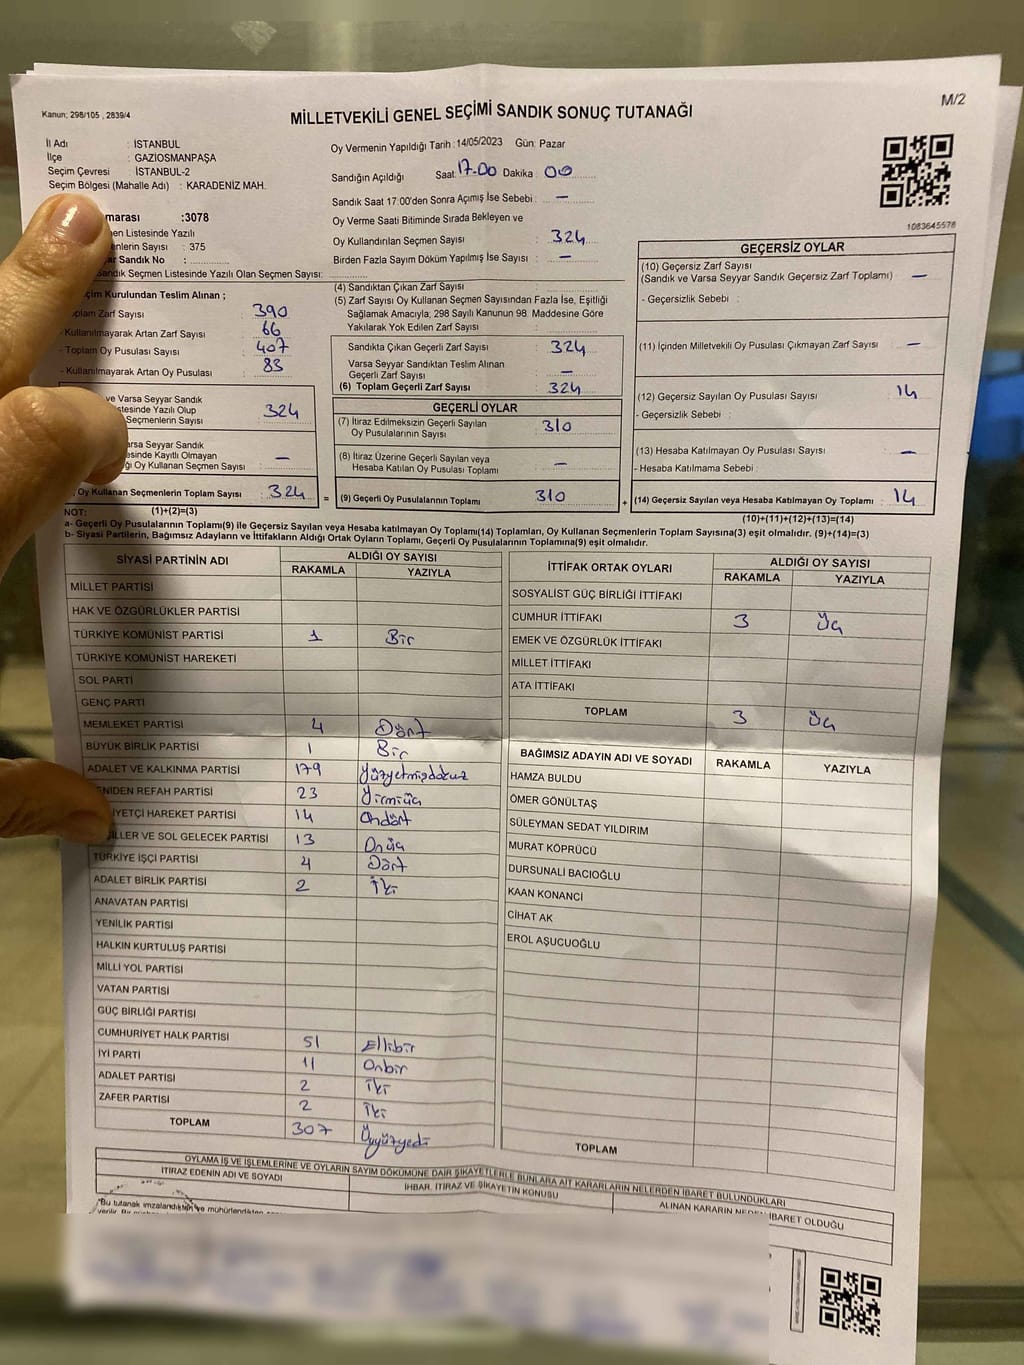 Kanun; 298/105 , 2839/4
MİLLETVEKİLİ GENEL SEÇİMİ SANDIK SONUÇ TUTANAĞI
M/2
İl Adı : İSTANBUL
İlçe : GAZİOSMANPAŞA
Seçim Çevresi : İSTANBUL-2
Seçim Bölgesi (Mahalle Adı) : KARADENİZ MAH.
marası :3078
en Listesinde Yazılı
enlerin Sayısı : 375
ar Sandık No :
andık Seçmen Listesinde Yazılı Olan Seçmen Sayısı:
Oy Vermenin Yapıldığı Tarih : 14/05/2023 Gün: Pazar
Sandığın Açıldığı Saat 17.00 Dakika : 00
Sandık Saat 17.00'den Sonra Açımış İse Sebebi : —
Oy Verme Saati Bitiminde Sırada Bekleyen ve
Oy Kullandırılan Seçmen Sayısı : 324
Birden Fazla Sayım Döküm Yapılmış İse Sayısı : —
1083645578
çim Kurulundan Teslim Alınan ;
oplam Zarf Sayısı : 390
- Kullanılmayarak Artan Zarf Sayısı : 66
- Toplam Oy Pusulası Sayısı : 407
- Kullanılmayarak Artan Oy Pusulası : 83
ve Varsa Seyyar Sandık
stesinde Yazılı Olup
Seçmenlerin Sayısı : 324
arsa Seyyar Sandık
esinde Kayıtlı Olmayan
ğı Oy Kullanan Seçmen Sayısı : —
Oy Kullanan Seçmenlerin Toplam Sayısı : 324
(1)+(2)=(3)
(4) Sandıktan Çıkan Zarf Sayısı :
(5) Zarf Sayısı Oy Kullanan Seçmen Sayısından Fazla İse, Eşitliği
Sağlamak Amacıyla; 298 Sayılı Kanunun 98. Maddesine Göre
Yakılarak Yok Edilen Zarf Sayısı :
Sandıkta Çıkan Geçerli Zarf Sayısı : 324
Varsa Seyyar Sandıktan Teslim Alınan
Geçerli Zarf Sayısı : —
(6) Toplam Geçerli Zarf Sayısı : 324
GEÇERLİ OYLAR
(7) İtiraz Edilmeksizin Geçerli Sayılan
Oy Pusulalarının Sayısı : 310
(8) İtiraz Üzerine Geçerli Sayılan veya
Hesaba Katılan Oy Pusulası Toplamı : —
= (9) Geçerli Oy Pusulalarının Toplamı : 310
GEÇERSİZ OYLAR
(10) Geçersiz Zarf Sayısı
(Sandık ve Varsa Seyyar Sandık Geçersiz Zarf Toplamı) : —
- Geçersizlik Sebebi :
(11) İçinden Milletvekili Oy Pusulası Çıkmayan Zarf Sayısı : —
(12) Geçersiz Sayılan Oy Pusulası Sayısı : 14
- Geçersizlik Sebebi :
(13) Hesaba Katılmayan Oy Pusulası Sayısı : —
- Hesaba Katılmama Sebebi :
+ (14) Geçersiz Sayılan veya Hesaba Katılmayan Oy Toplamı : 14
(10)+(11)+(12)+(13)=(14)
NOT:
a- Geçerli Oy Pusulalarının Toplamı(9) ile Geçersiz Sayılan veya Hesaba katılmayan Oy Toplamı(14) Toplamları, Oy Kullanan Seçmenlerin Toplam Sayısına(3) eşit olmalıdır. (9)+(14)=(3)
b- Siyasi Partilerin, Bağımsız Adayların ve İttifakların Aldığı Ortak Oyların Toplamı, Geçerli Oy Pusulalarının Toplamına(9) eşit olmalıdır.
SİYASİ PARTİNİN ADI ALDIĞI OY SAYISI
RAKAMLA YAZIYLA
MİLLET PARTİSİ
HAK VE ÖZGÜRLÜKLER PARTİSİ
TÜRKİYE KOMÜNİST PARTİSİ 1 Bir
TÜRKİYE KOMÜNİST HAREKETİ
SOL PARTİ
GENÇ PARTİ
MEMLEKET PARTİSİ 4 Dört
BÜYÜK BİRLİK PARTİSİ 1 Bir
ADALET VE KALKINMA PARTİSİ 179 Yüzyetmişdokuz
ENİDEN REFAH PARTİSİ 23 Yirmiüç
İYETÇİ HAREKET PARTİSİ 14 Ondört
İLLER VE SOL GELECEK PARTİSİ 13 Onüç
TÜRKİYE İŞÇİ PARTİSİ 4 Dört
ADALET BİRLİK PARTİSİ 2 İki
ANAVATAN PARTİSİ
YENİLİK PARTİSİ
HALKIN KURTULUŞ PARTİSİ
MİLLİ YOL PARTİSİ
VATAN PARTİSİ
GÜÇ BİRLİĞİ PARTİSİ
CUMHURİYET HALK PARTİSİ 51 Ellibir
İYİ PARTİ 11 Onbir
ADALET PARTİSİ 2 İki
ZAFER PARTİSİ 2 İki
TOPLAM 307 Üçyüzyedi
İTTİFAK ORTAK OYLARI ALDIĞI OY SAYISI
RAKAMLA YAZIYLA
SOSYALİST GÜÇ BİRLİĞİ İTTİFAKI
CUMHUR İTTİFAKI 3 Üç
EMEK VE ÖZGÜRLÜK İTTİFAKI
MİLLET İTTİFAKI
ATA İTTİFAKI
TOPLAM 3 Üç
BAĞIMSIZ ADAYIN ADI VE SOYADI RAKAMLA YAZIYLA
HAMZA BULDU
ÖMER GÖNÜLTAŞ
SÜLEYMAN SEDAT YILDIRIM
MURAT KÖPRÜCÜ
DURSUNALİ BACIOĞLU
KAAN KONANCI
CİHAT AK
EROL AŞUCUOĞLU
TOPLAM
OYLAMA İŞ VE İŞLEMLERİNE VE OYLARIN SAYIM DÖKÜMÜNE DAİR ŞİKAYETLERLE BUNLARA AİT KARARLARIN NELERDEN İBARET BULUNDUKLARI
İTİRAZ EDENİN ADI VE SOYADI İHBAR, İTİRAZ VE ŞİKAYETİN KONUSU ALINAN KARARIN NEDEN İBARET OLDUĞU
"Bu tutanak imzalandıktan ve mühürlendikten